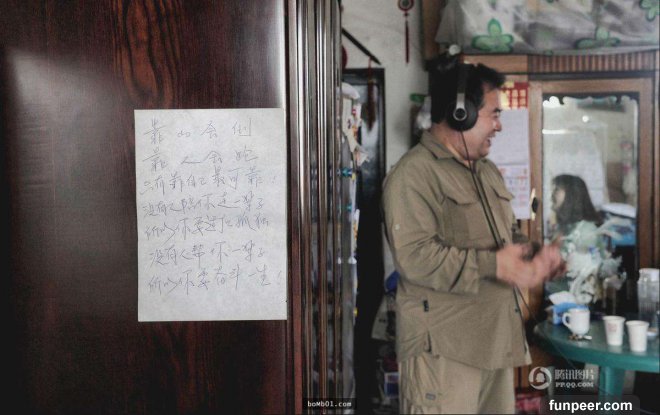 靠山会倒
靠人会跑
只有靠自己最可靠!
没有人陪你走一辈子
所以你要适应孤独
没有人帮你一辈子
所以你要奋斗一生!
bomb01.com
腾讯图片
PP.QQ.COM
funpeer.com